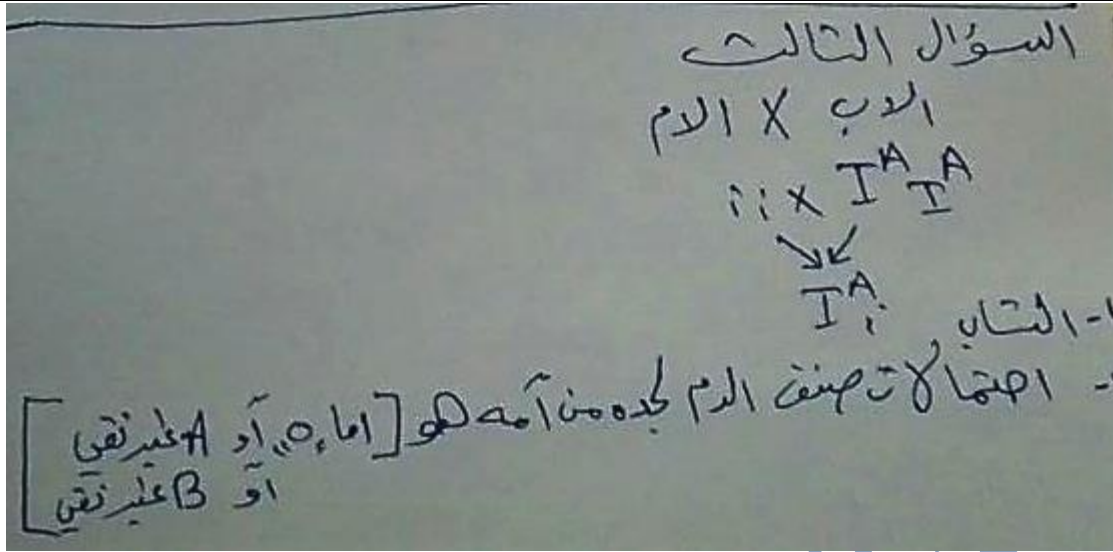 السؤال الثالث
الاب X الام
I^A I^A x ii
I^A i
١- الشاب
- احتمالات صنف الدم لجده من أمه هو [اما "O" أو A غير نقي
أو B غير نقي]